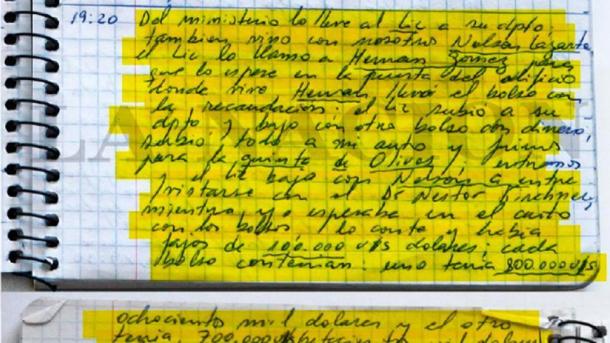 19:20 Del ministerio lo lleve al Lic a su dpto,
tambien vino con nosotros Nelson Lazarte
el Lic lo llamo a Hernan Gomez para
que lo espere en la puerta del edificio
donde vive, Hernan llevó el bolso con
la recaudación; el Lic subio a su
dpto y bajo con otro bolso con dinero,
subio todo a mi auto y fuimos
para la quinta de Olivos y entramos
y el Lic bajo con Nelson a entre
vistarse con el Dr Nestor Kirchner,
mientras yo esperaba en el auto
con los bolsos; lo conte y habia
fajos de 100.000 u$s dolares; cada
bolso contenian: uno tenia 800.000 u$s
ochocientos mil dolares y el otro
tenia 700.000 u$s setecientos mil dolares
LA NACION